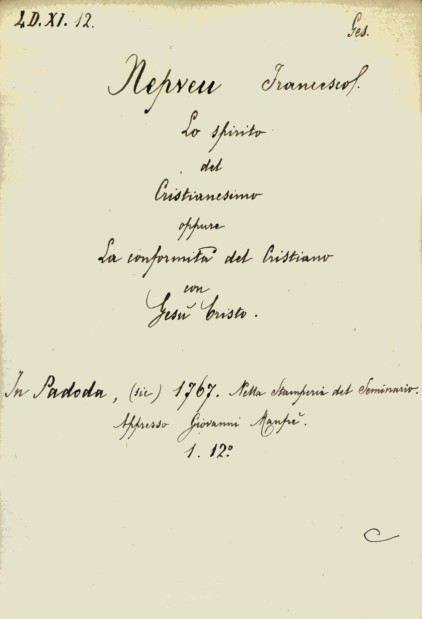 4D.XI. 12. Ges.
Nepveu Francesco S.
Lo spirito
del
Cristianesimo
oppure
La conformità del Cristiano
con
Gesù Cristo.
In Padoda, (sic) 1767. Nella Stamperia del Seminario.
Appresso Giovanni Manfrè.
1. 12º
C